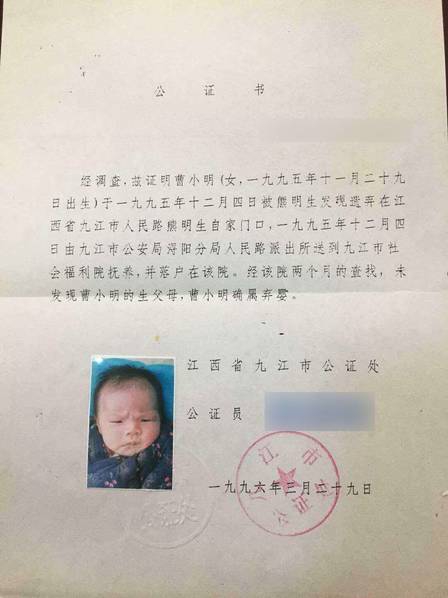 公证书
经调查，兹证明曹小明(女，一九九五年十一月二十九
日出生)于一九九五年十二月四日被熊明生发现遗弃在江
西省九江市人民路熊明生自家门口，一九九五年十二月四
日由九江市公安局浔阳分局人民路派出所送到九江市社
会福利院抚养，并落户在该院。经该院两个月的查找，未
发现曹小明的生父母，曹小明确属弃婴。
江西省九江市公证处
公证员
江市
公证
一九九六年三月二十九日